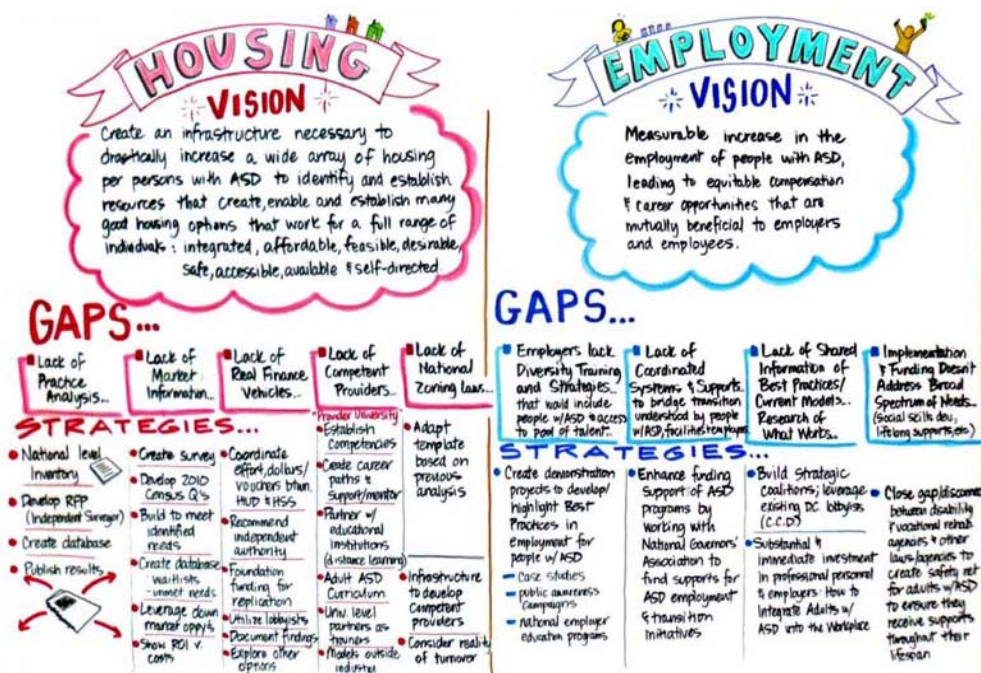 HOUSING
VISION
Create an infrastructure necessary to
drastically increase a wide array of housing
per persons with ASD to identify and establish
resources that create, enable and establish many
good housing options that work for a full range of
individuals: integrated, affordable, feasible, desirable,
safe, accessible, available & self-directed
GAPS...
Lack of
Practice
Analysis...
Lack of
Market
Information...
Lack of
Real Finance
Vehicles...
Lack of
Competent
Providers...
Lack of
National
Zoning Laws...
STRATEGIES...
National level
Inventory
Develop RFP
(Independent Surveyor)
Create database
Publish results
Create survey
Develop 2010
Census Q's
Build to meet
identified
needs
Create database
- waitlists
- unmet needs
Leverage down
market opp'ys
Show ROI v.
costs
Coordinate
effort, dollars/
vouchers btwn.
HUD & HSS
Recommend
independent
authority
Foundation
funding for
replication
Utilize lobbyists
Document findings
Explore other
options
"Provider University"
Establish
Competencies
Create career
paths &
support/mentor
Partner w/
educational
institutions
(distance learning)
Adult ASD
Curriculum
Univ. level
partners as
trainers
Models outside
industry
Adapt
template
based on
previous
analysis
Infrastructure
to develop
competent
providers
Consider reality
of turnover
EMPLOYMENT
VISION
Measurable increase in the
employment of people with ASD,
leading to equitable compensation
& career opportunities that are
mutually beneficial to employers
and employees.
GAPS...
Employers lack
Diversity Training
and Strategies...
that would include
people w/ASD & access
to pool of talent...
Lack of
Coordinated
Systems & Supports...
to bridge transition
understood by people
w/ASD, facilities & employers
Lack of Shared
Information of
Best Practices/
Current Models...
Research of
What Works...
Implementation
& Funding Doesn't
Address Broad
Spectrum of Needs...
(social skills dev.,
lifelong supports, etc)
STRATEGIES...
Create demonstration
projects to develop/
highlight Best
Practices in
employment for
people w/ASD
- case studies
- public awareness
campaigns
- national employer
education programs
Enhance funding
support of ASD
programs by
working with
National Governors'
Association to
fund supports for
ASD employment
& transition
initiatives
Build strategic
coalitions; leverage
existing DC lobbyists
(C.C.D)
Substantial &
immediate investment
in professional personnel
& employers: How to
Integrate Adults w/
ASD into the Workplace
Close gap/disconnect
between disability
& vocational rehab
agencies & other
laws/agencies to
create safety net
for adults w/ASD
to ensure they
receive supports
throughout their
lifespan